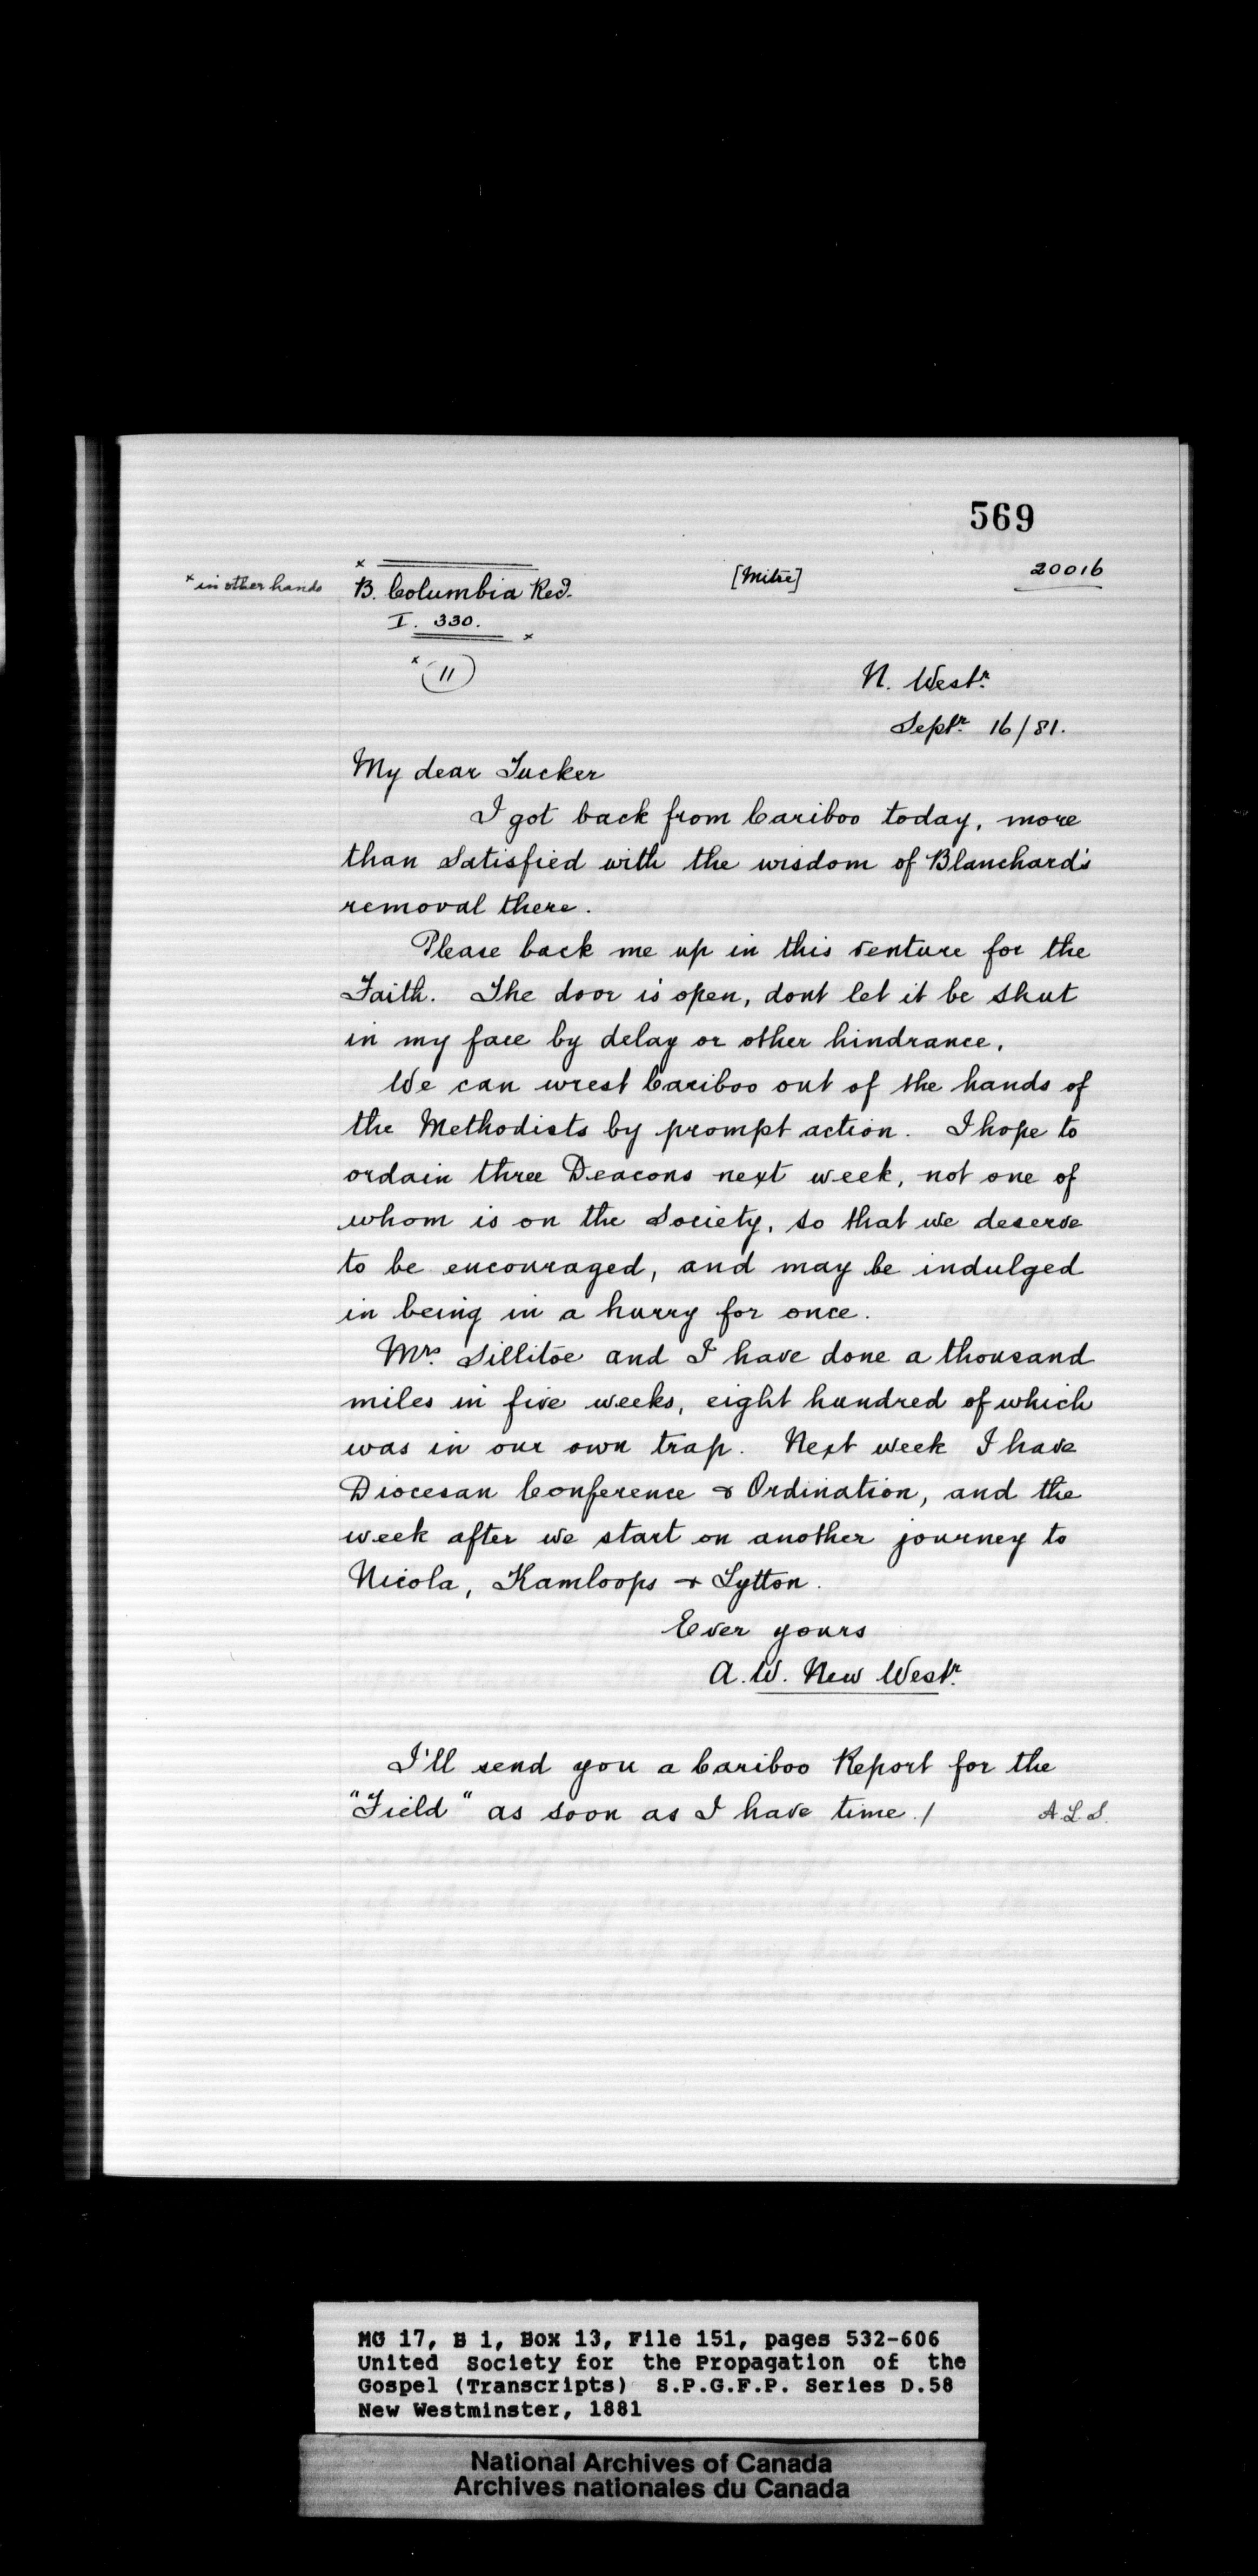 569
× in other hands
×
B. Columbia Recd.
I. 330.
×
[Mitre]
20016
× (11)
N. Westr.
Septr. 16/81.
My dear Tucker
I got back from Cariboo today, more
than satisfied with the wisdom of Blanchard's
removal there.
Please back me up in this venture for the
Faith. The door is open, dont let it be shut
in my face by delay or other hindrance.
We can wrest Cariboo out of the hands of
the Methodists by prompt action. I hope to
ordain three Deacons next week, not one of
whom is on the Society, so that we deserve
to be encouraged, and may be indulged
in being in a hurry for once.
Mrs. Sillitoe and I have done a thousand
miles in five weeks, eight hundred of which
was in our own trap. Next week I have
Diocesan Conference & Ordination, and the
week after we start on another journey to
Nicola, Kamloops & Lytton.
Ever yours
A.W. New Westr.
I'll send you a Cariboo Report for the
"Field" as soon as I have time./
A.L.S.
MG 17, B 1, Box 13, File 151, pages 532-606
United Society for the Propagation of the
Gospel (Transcripts) S.P.G.F.P. Series D.58
New Westminster, 1881
National Archives of Canada
Archives nationales du Canada